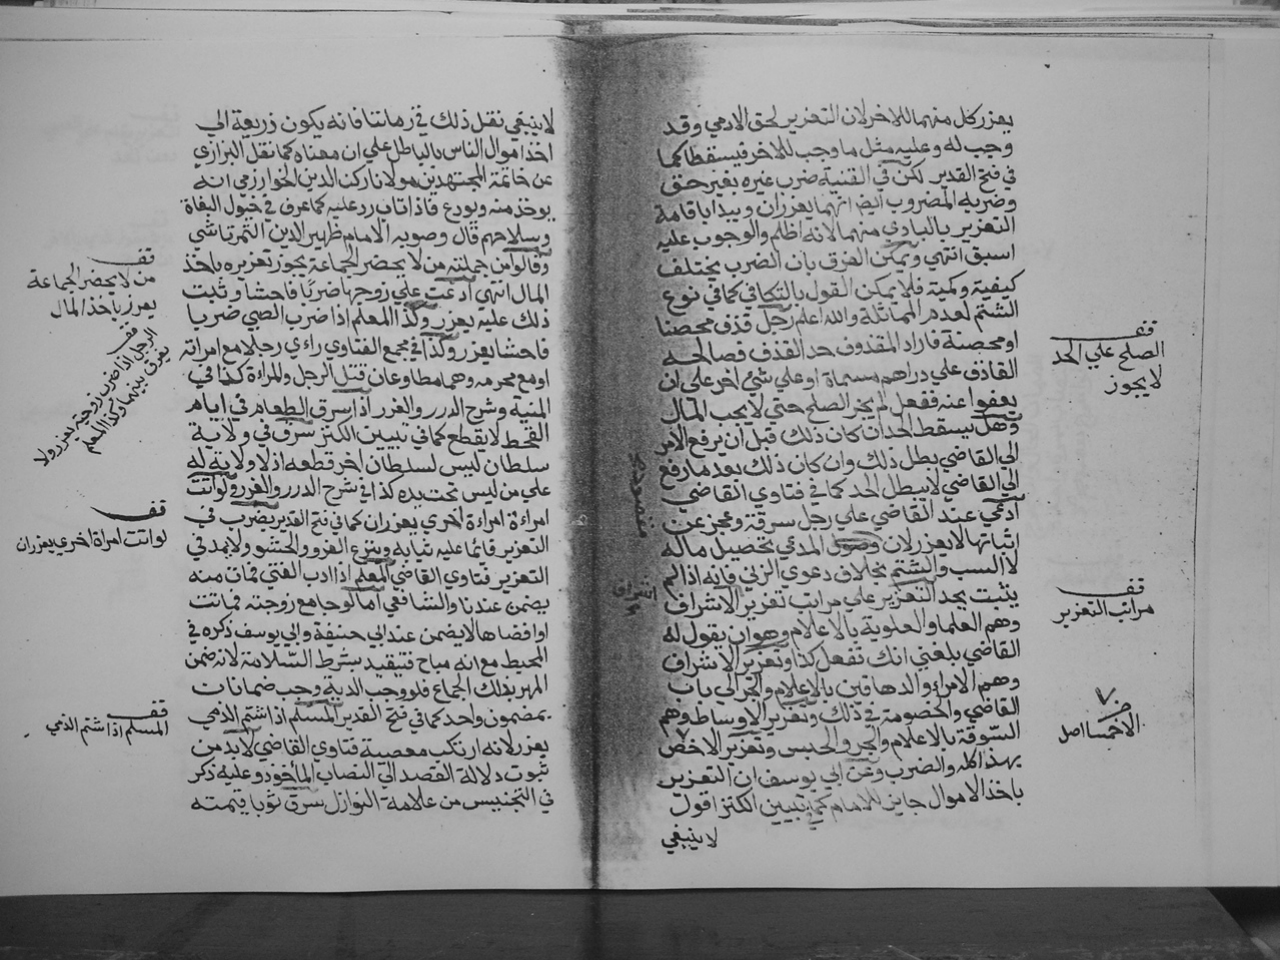 يعزر كل منهما للاخر لان التعزير لحق الادمي وقد
وجب له وعليه مثل ما وجب للاخر فيسقطا كما
في فتح القدير لكن في القنية ضرب غيره بغير حق
وضربه المضروب ايضا انهما يعزران ويبدا باقامة
التعزير بالبادي منهما لانه اظلم والوجوب عليه
اسبق انتهي ويمكن الفرق بان الضرب يختلف
كيفية وكمية فلا يمكن القول بالتكافي كما في نوع
الشتم لعدم المماثلة والله اعلم رجل قذف محصنا
او محصنة فاراد المقذوف حد القذف فصالحه
القاذف علي دراهم مسماة او علي شي اخر علي ان
يعفوا عنه ففعل لم يجز الصلح حتي لا يجب المال
وهل يسقط الحد ان كان ذلك قبل ان يرفع الامر
الي القاضي بطل ذلك وان كان ذلك بعد ما رفع
الي القاضي لا يبطل الحد كما في فتاوي القاضي
ادعي عند القاضي علي رجل سرقة وعجز عن
اثباتها لا يعزر لان المدعي تحصيل ماله
لا السب والشتم بخلاف دعوي الزني فانه اذا لم
يثبت يحد التعزير علي مراتب تعزير الاشراف
وهم العلما والعلوية بالاعلام وهو ان يقول له
القاضي بلغني انك تفعل كذا وتعزير الاشراف
وهم الامراء والدهاقين بالاعلام والجر الي باب
القاضي والخصومة في ذلك وتعزير الاوساط وهم
السوقة بالاعلام والجر والحبس وتعزير الاخص
بهذا كله والضرب وعن ابي يوسف ان التعزير
باخذ الاموال جايز للامام كما في تبيين الكنز اقول
لا ينبغي
قف
الصلح علي الحد
لا يجوز
قف
مراتب التعزير
الاخسا اصل
اشراف
لا ينبغي نقل ذلك في زماننا فانه يكون ذريعة الي
اخذ اموال الناس بالباطل علي ان معناه كما نقل البزازي
عن خاتمة المجتهدين مولانا ركن الدين الخوارزمي انه
يوخذ منه ويودع فاذا تاب رد عليه كما عرف في خيول البغاة
وسلاحهم قال وصوبه الامام ظهير الدين التمرتاشي
وقالوا من جملته من لا يحضر الجماعة يجوز تعزيره باخذ
المال انتهي ادعت علي زوجها ضربا فاحشا وثبت
ذلك عليه يعزر وكذا المعلم اذا ضرب الصبي ضربا
فاحشا يعزر وكذا في مجمع الفتاوي راءي رجلا مع امراته
او مع محرمه وهما مطاوعان قتل الرجل والمراءة كذا في
المنية وشرح الدرر والغرر اذا سرق الطعام في ايام
القحط لا يقطع كما في تبيين الكنز سرق في ولاية
سلطان ليس لسلطان اخر قطعه اذ لا ولاية له
علي من ليس تحت يده كذا في شرح الدرر والغرر ولو اتت
امراءة امراءة اخري يعزران كما في فتح القدير يضرب في
التعزير قائما عليه ثيابه وينزع الفرو والحشو ولا يمد في
التعزير فتاوي القاضي المعلم اذا ادب الفتي فمات منه
يضمن عندنا والشافعي اما لو جامع زوجته فماتت
او افضاها لا يضمن عند ابي حنيفة وابي يوسف ذكره في
المحيط مع انه مباح فتيقيد بشرط السلامة لانه ضمن
المهر بذلك الجماع فلو وجب الدية وجب ضمانات
بمضمون واحد كما في فتح القدير المسلم اذا شتم الذمي
يعزر لانه ارتكب معصية فتاوي القاضي لا بد من
ثبوت دلالة القصد الي النصاب الماخوذ وعليه ذكر
في التجنيس من علامة النوازل سرق ثوبا قيمته
قف
من لا يحضر الجماعة
يعزر باخذ المال
قف
الرجل اذا ضرب زوجته يعزر ولا
يفرق بينهما وكذا المعلم
قف
لو اتت امراة اخري يعزران
قف
المسلم اذا شتم الذمي